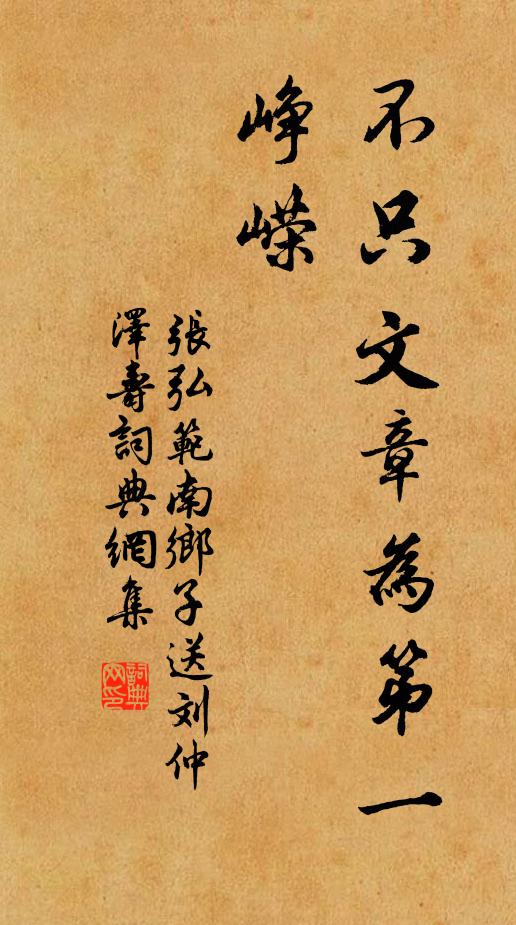 不只文章為第一
峥嶸
張弘範南鄉子送刘仲
澤壽詞典網集
詞典网印